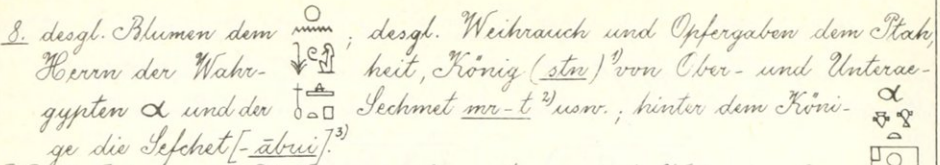 8. desgl. Blumen dem ; desgl. Weihrauch und Opfergaben dem Ptah,
Herrn der Wahr- heit, König (stn)¹⁾ von Ober- und Unterae-
gypten α und der Sechmet mr-t²⁾ usw.; hinter dem Köni- α
ge die Sefchet [-ābui].³⁾